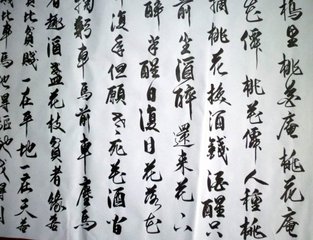 塢里桃花庵桃花庵
花僊桃花僊人種桃
摘桃花換酒錢酒醒只
前坐酒醉還來花
醉半醒日復日花落花
復年但願老死花酒間
鞠躬車馬前車塵馬
者趣酒盞花枝貧者緣若
比貧賤一在平地一在天若
賤比車馬他得驅馳我得